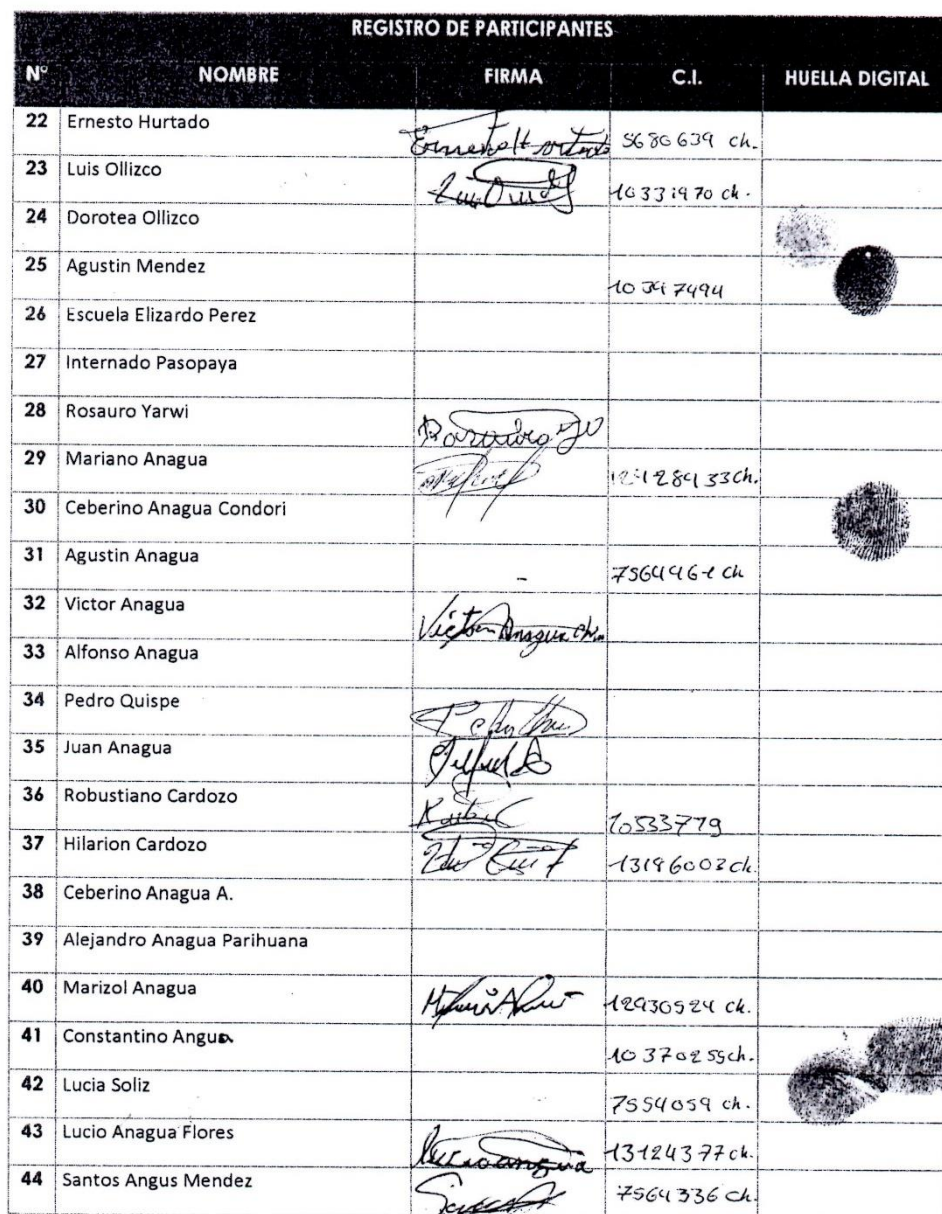 REGISTRO DE PARTICIPANTES
N° NOMBRE FIRMA C.I. HUELLA DIGITAL
22 Ernesto Hurtado 5680639 ch.
23 Luis Ollizco 10331970 ch.
24 Dorotea Ollizco
25 Agustin Mendez 10347494
26 Escuela Elizardo Perez
27 Internado Pasopaya
28 Rosauro Yarwi
29 Mariano Anagua
30 Ceberino Anagua Condori
31 Agustin Anagua
32 Victor Anagua Victor Anagua
33 Alfonso Anagua
34 Pedro Quispe
35 Juan Anagua
36 Robustiano Cardozo 10533779
37 Hilarion Cardozo 13196003 ch.
38 Ceberino Anagua A.
39 Alejandro Anagua Parihuana
40 Marizol Anagua 12930524 ch.
41 Constantino Angua 10370255 ch.
42 Lucia Soliz 7554059 ch.
43 Lucio Anagua Flores 13124377 ch.
44 Santos Angus Mendez 7564336 ch.